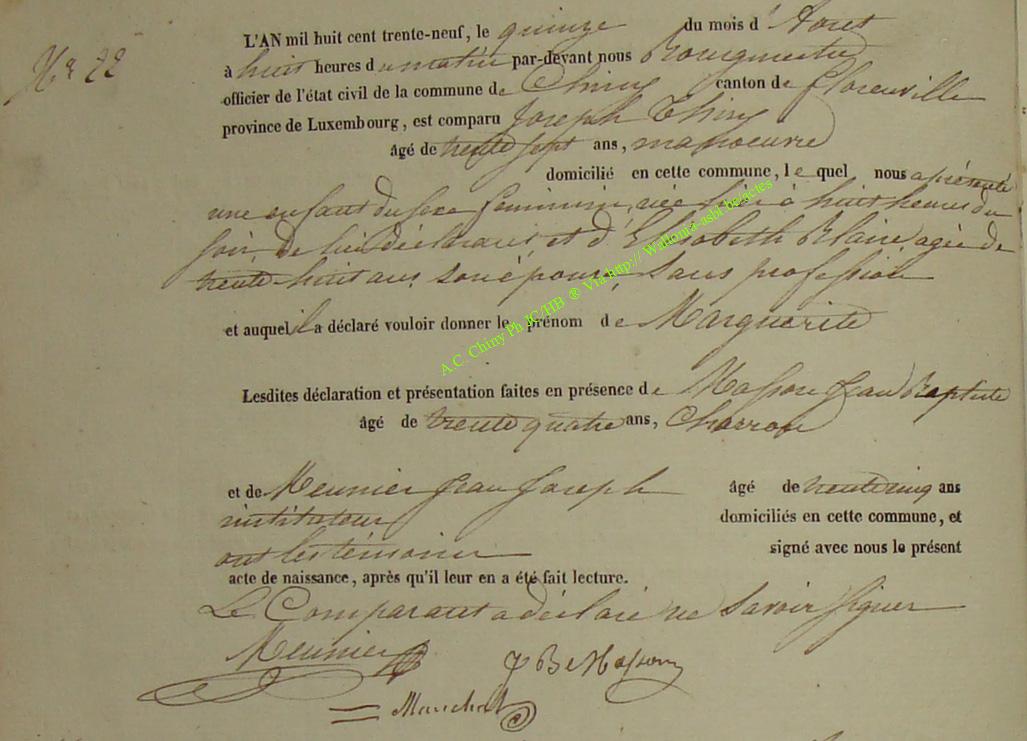 N.º 22
L'AN mil huit cent trente-neuf, le quinze du mois d'Aout
à huit heures du matin par-devant nous Bourguemestre
officier de l'état civil de la commune de Chiny canton de florenville
province de Luxembourg, est comparu Joseph Thiry
âgé de trente sept ans, manoeuvre
domicilié en cette commune, le quel nous a présenté
une enfant du sexe féminin, née hier à huit heures du
soir, de lui déclarant et d'Elisabeth Blaise, agée de
trente-huit ans, son épouse, Sans profession
et auquel il a déclaré vouloir donner le prénom de Marguerite
Lesdites déclaration et présentation faites en présence de Masson Jean Baptiste
âgé de trente quatre ans, Charron
et de Meunier Jean Joseph âgé de trente cinq ans
instituteur domiciliés en cette commune, et
ont les témoins signé avec nous le présent
acte de naissance, après qu'il leur en a été fait lecture.
Le Comparant a déclaré ne Savoir Signer
Meunier J B Masson
A.C. Chiny Ph JC/HB ® Via http:// Wallonia-asbl-be/actes